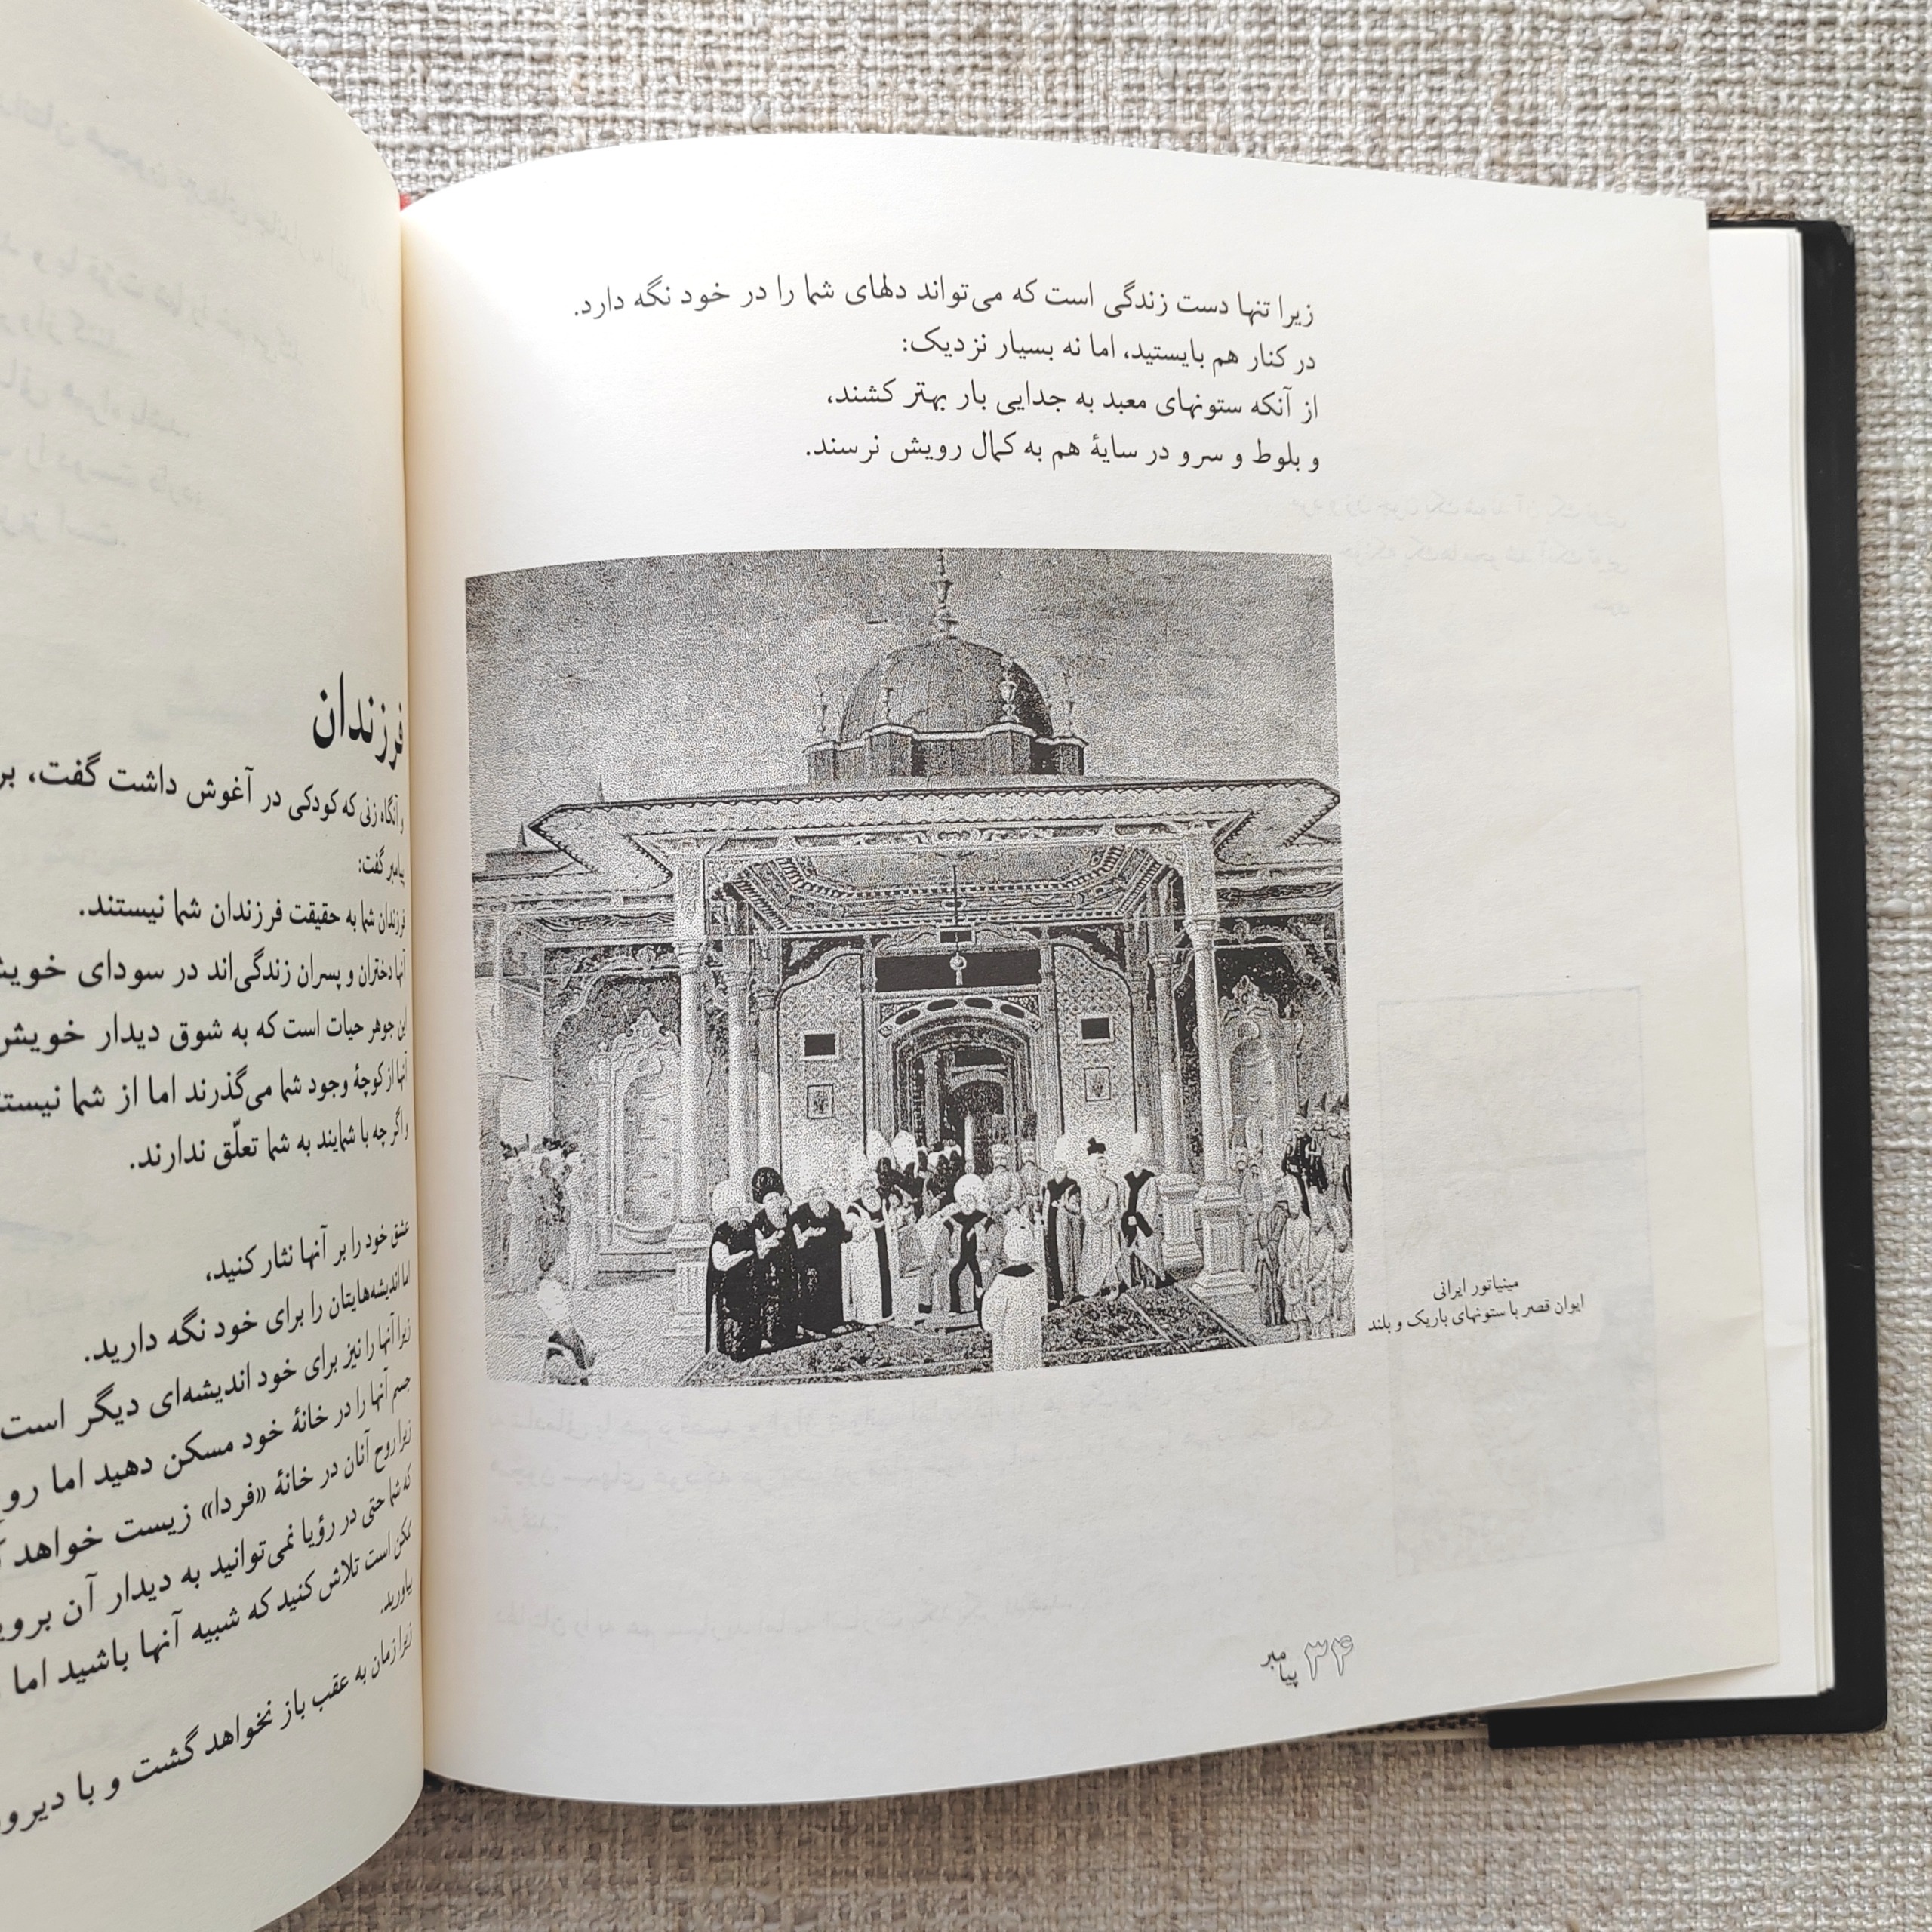 زیرا تنها دست زندگی است که می‌تواند دلهای شما را در خود نگه دارد.
در کنار هم بایستید، اما نه بسیار نزدیک:
از آنکه ستونهای معبد به جدایی بار بهتر کشند،
و بلوط و سرو در سایهٔ هم به کمال رویش نرسند.
مینیاتور ایرانی
ایوان قصر با ستونهای باریک و بلند
۳۴
پیامبر
فرزندان
و آنگاه زنی که کودکی در آغوش داشت گفت،
پیامبر گفت:
فرزندان شما به حقیقت فرزندان شما نیستند.
آنها دختران و پسران زندگی‌اند در سودای خویش
این جوهر حیات است که به شوق دیدار خویش
آنها از کوچهٔ وجود شما می‌گذرند اما از شما
و اگر چه با شمایند به شما تعلّق ندارند.
عشق خود را بر آنها نثار کنید،
اما اندیشه‌هایتان را برای خود نگه دارید.
زیرا آنها را نیز برای خود اندیشه‌ای دیگر است
جسم آنها را در خانهٔ خود مسکن دهید اما
زیرا روح آنان در خانهٔ «فردا» زیست خواهد
که شما حتی در رؤیا نمی‌توانید به دیدار آن
ممکن است تلاش کنید که شبیه آنها باشید اما
بیاورید.
زیرا زمان به عقب باز نخواهد گشت و با